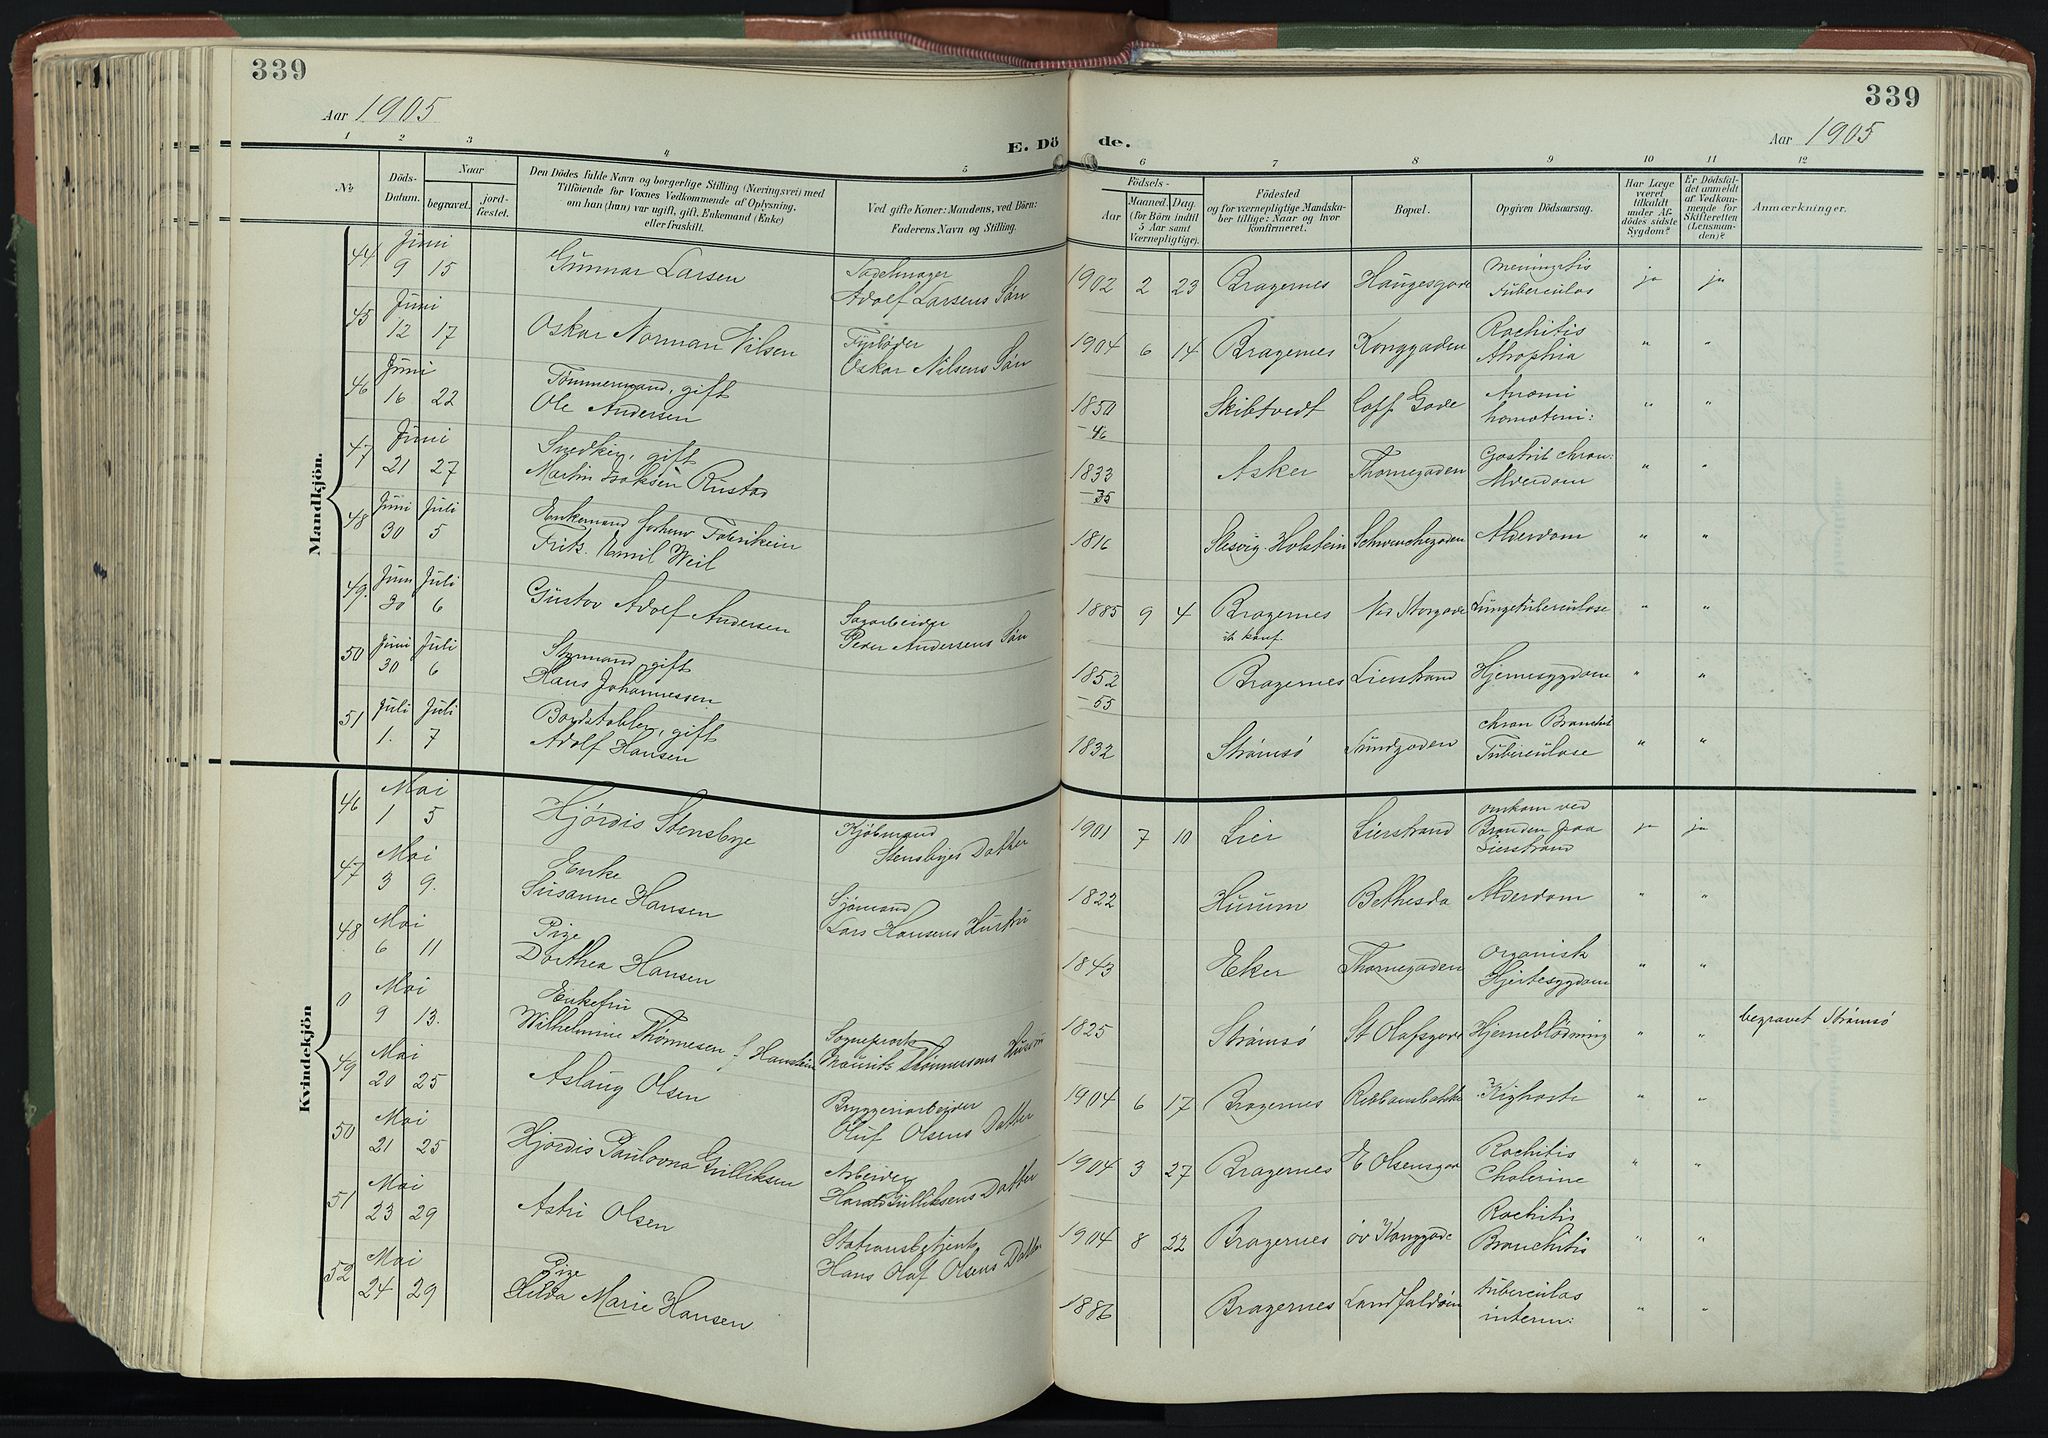 339
339
Aar 1905
E. Döde.
Aar 1905
1 2 3 4 5 6 7 8 9 10 11 12
№
Döds-Datum.
Naar
begravet.
jord-fæstet.
Den Dödes fulde Navn og borgerlige Stilling (Næringsvei) med
Tilföiende for Voxnes Vedkommende af Oplysning,
om han (hun) var ugift, gift, Enkemand (Enke)
eller fraskilt.
Ved gifte Koner: Mandens, ved Börn:
Faderens Navn og Stilling.
Födsels-
Aar
Maaned. Dag.
(for Börn indtil
5 Aar samt
Værnepligtige).
Födested
og for værnepligtige Mandska-
ber tillige: Naar og hvor
Konfirmeret.
Bopæl.
Opgiven Dödsaarsag.
Har Læge
været
tilkaldt
under Af-
dödes sidste
Sygdom?
Er Dödsfal-
det anmeldt
af Vedkom-
mende for
Skifteretten
(Lensman-
den)?
Anmærkninger.
Mandkjön.
44 Juni 9 15 Gunnar Larsen Sadelmager
Adolf Larsens Søn 1902 2 23 Bragernes Haugesgade Meningitis
tuberculos ja ja
45 Juni 12 17 Oskar Norman Nilsen Fyrbøder
Oskar Nilsens Søn 1904 6 14 Bragernes Konggaden Rachitis
Atrophia " "
46 Juni 16 22 Tømmermand, gift
Ole Andersen 1850 Skibtvedt Gade " "
-46
47 Juni 21 27 Snedker, gift
Martin Isaksen Rustad 1833 Asker Thornegaden Gastrit chron:
Alderdom " "
-35
48 Juni 30 Juli 5 Enkemand, forhenv Fabrikeier
Fritz Emil Weil 1816 Slesvig-Holstein Schwenckegaden Alderdom " "
49. Juni 30 Juli 6 Gustav Adolf Andersen Sagarbeider
Peder Andersens Søn 1885 9 4 Bragernes
konf. Ned Storgade Lungetuberculose " "
50 Juni 30 Juli 6 Styrmand, gift
Hans Johannessen 1852 Bragernes Lierstrand Hjernesygdom " "
-55
51 Juli 1. Juli 7 Bordstabler, gift
Adolf Hansen 1832 Strømsø Sundgaden chron Bronchit
Tuberculose " "
Kvindekjön
46 Mai 1 5 Hjørdis Stensbye Kjøbmand
Stensbyes Datter 1901 7 10 Lier Lierstrand omkom ved
Branden paa
Lierstrand ja ja
47 Mai 3 9. Enke
Susanne Hansen Sjømand
Lars Hansens Hustru 1822 Hurum Bethesda Alderdom " "
48 Mai 6 11 Pige
Dorthea Hansen 1843 Eker Thornegaden organisk
Hjertesygdom " "
0 Mai 9 13. Enkefru
Wilhelmine Thønnesen f. Hanstein Sogneprest
Mauritz Thønnesens Hustru 1825 Strømsø St Olafsgade Hjerneblödning " " begravet Strømsø
49 Mai 20 25 Aslaug Olsen Bryggeriarbeider
Oluf Olsens Datter 1904 6 17 Bragernes Kighoste " "
50 Mai 21 25 Hjørdis Paulovna Gulliksen Arbeider
Harald Gulliksens Datter 1904 3 27 Bragernes E Olsensgade Rachitis
Cholerine " "
51 Mai 23 29 Astri Olsen Stationsbetjent
Hans Olaf Olsens Datter 1904 8 22 Bragernes øv Konggade Rachitis
Bronchitis " "
52 Mai 24 29 Pige
Hilda Marie Hansen 1886 Bragernes Landfaldøen tuberculos
intern: " "